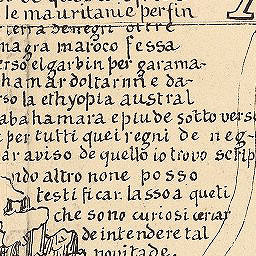 le mauritanie per fin
terra de negri oltre
nagra maroco fessa
verso el garbin per garama-
hamar dol tarin e da-
rso la ethyopia austral
abahamara e piu de sotto verso
per tutti quei regni de neg-
ar aviso de quello io trovo scrip
ndo altro none posso
testificar lasso a queti
che sono curiosi cercar
de intendere tal
novitade.